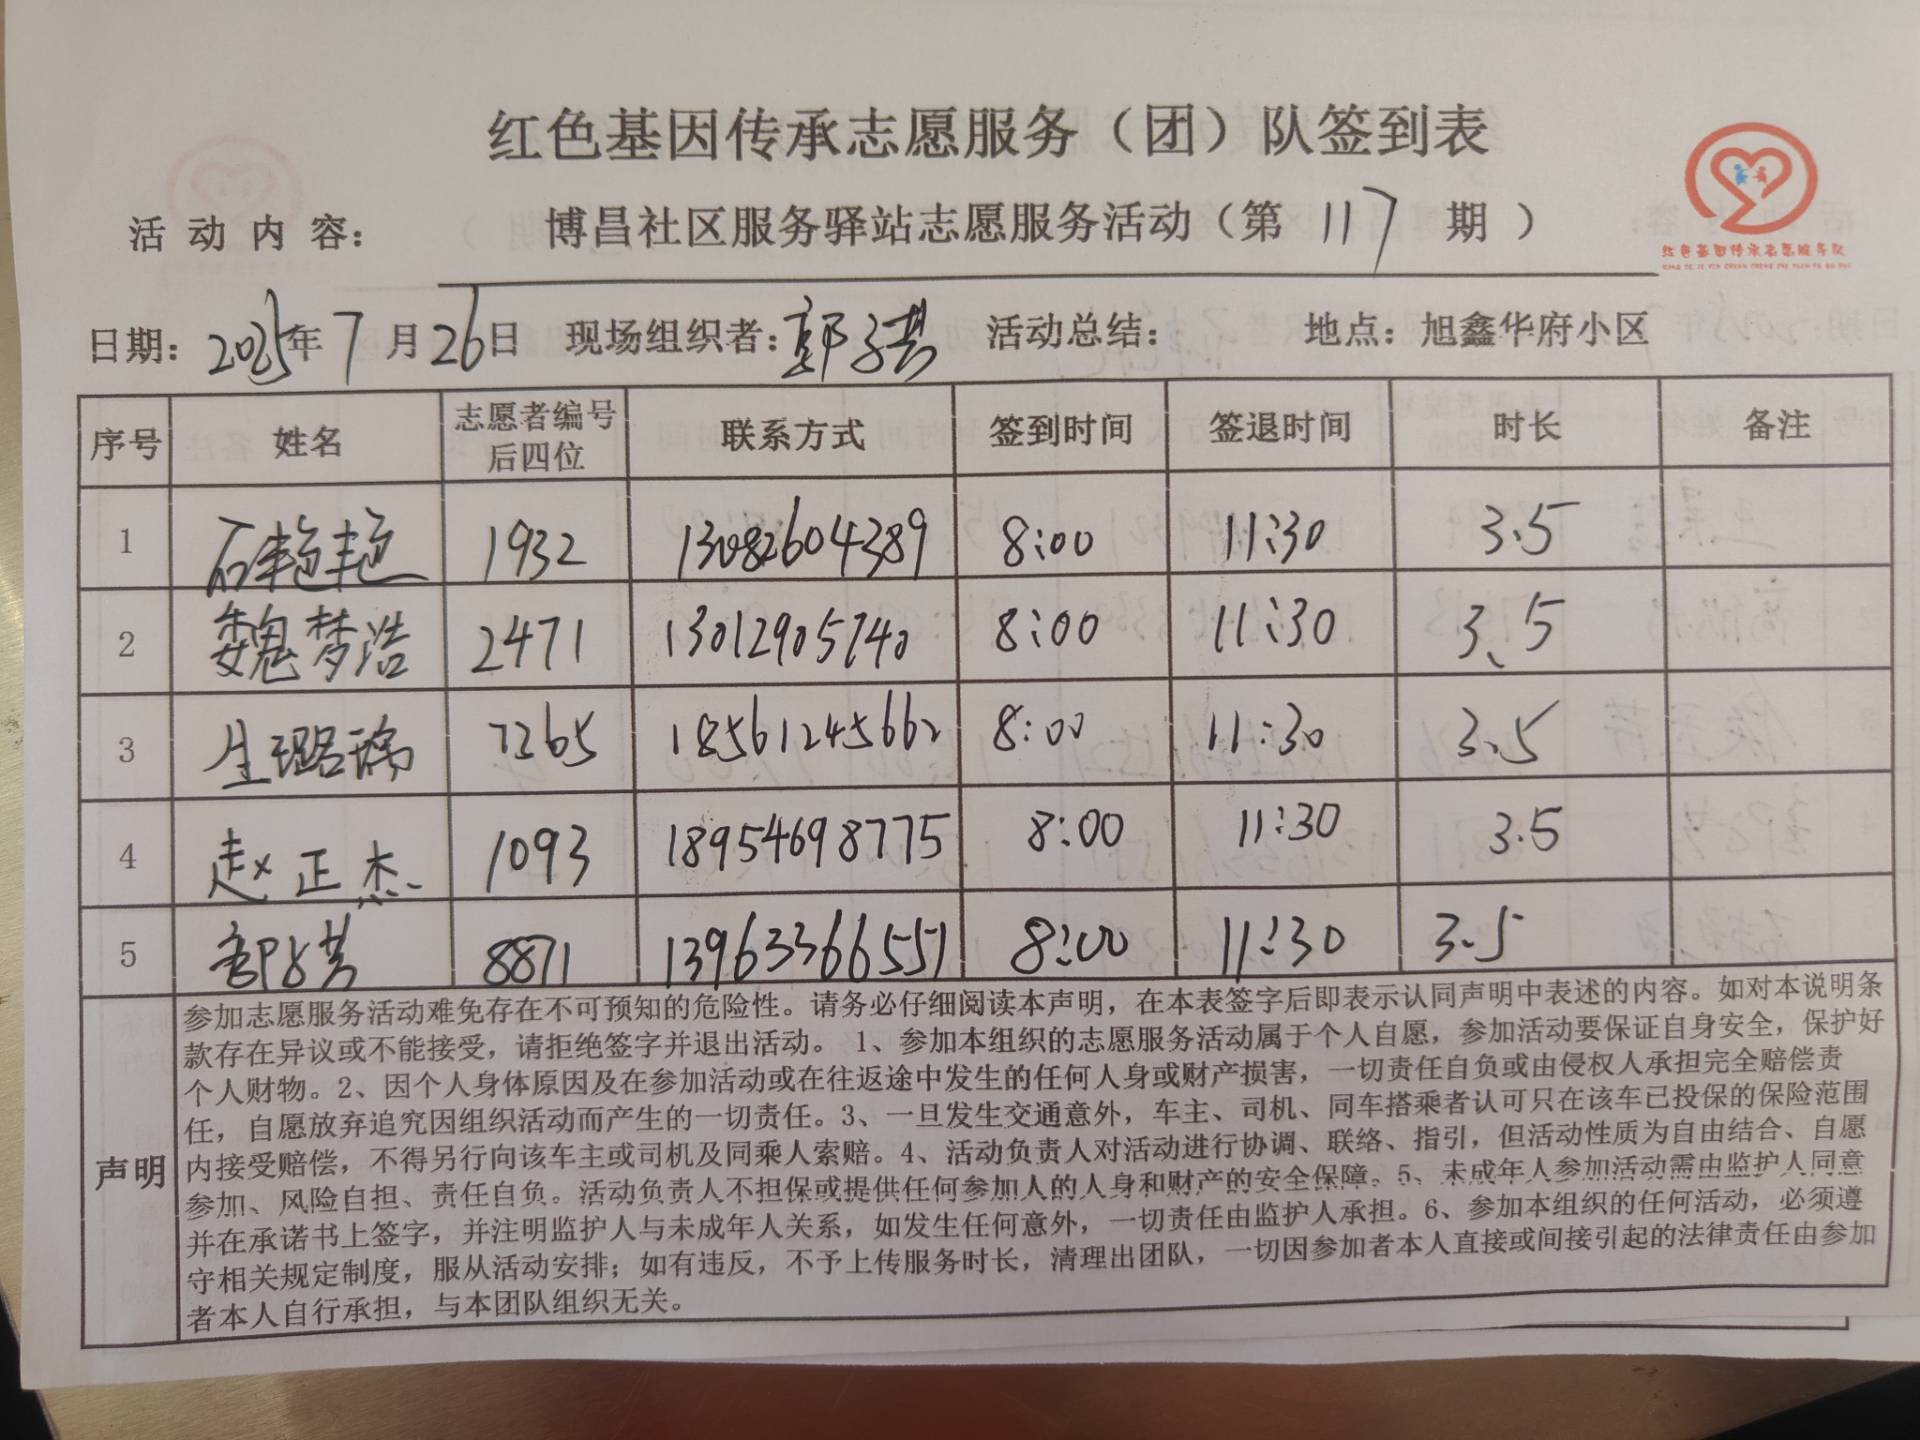 红色基因传承志愿服务（团）队签到表
活 动 内 容： 博昌社区服务驿站志愿服务活动（第 117 期 ）
红色基因传承志愿服务队
日期：2025年7月26日 现场组织者：郭子琪 活动总结： 地点：旭鑫华府小区
序号 姓名 志愿者编号后四位 联系方式 签到时间 签退时间 时长 备注
1 石艳艳 1932 13082604389 8:00 11:30 3.5
2 魏梦浩 2471 13012905740 8:00 11:30 3.5
3 生璐瑞 7265 18561245662 8:00 11:30 3.5
4 赵正杰 1093 18954698775 8:00 11:30 3.5
5 8871 13963366551 8:00 11:30 3.5
声明
参加志愿服务活动难免存在不可预知的危险性。请务必仔细阅读本声明，在本表签字后即表示认同声明中表述的内容。如对本说明条
款存在异议或不能接受，请拒绝签字并退出活动。 1、参加本组织的志愿服务活动属于个人自愿，参加活动要保证自身安全，保护好
个人财物。2、因个人身体原因及在参加活动或在往返途中发生的任何人身或财产损害，一切责任自负或由侵权人承担完全赔偿责
任，自愿放弃追究因组织活动而产生的一切责任。3、一旦发生交通意外，车主、司机、同车搭乘者认可只在该车已投保的保险范围
内接受赔偿，不得另行向该车主或司机及同乘人索赔。4、活动负责人对活动进行协调、联络、指引，但活动性质为自由结合、自愿
参加、风险自担、责任自负。活动负责人不担保或提供任何参加人的人身和财产的安全保障。5、未成年人参加活动需由监护人同意
并在承诺书上签字，并注明监护人与未成年人关系，如发生任何意外，一切责任由监护人承担。6、参加本组织的任何活动，必须遵
守相关规定制度，服从活动安排；如有违反，不予上传服务时长，清理出团队，一切因参加者本人直接或间接引起的法律责任由参加
者本人自行承担，与本团队组织无关。